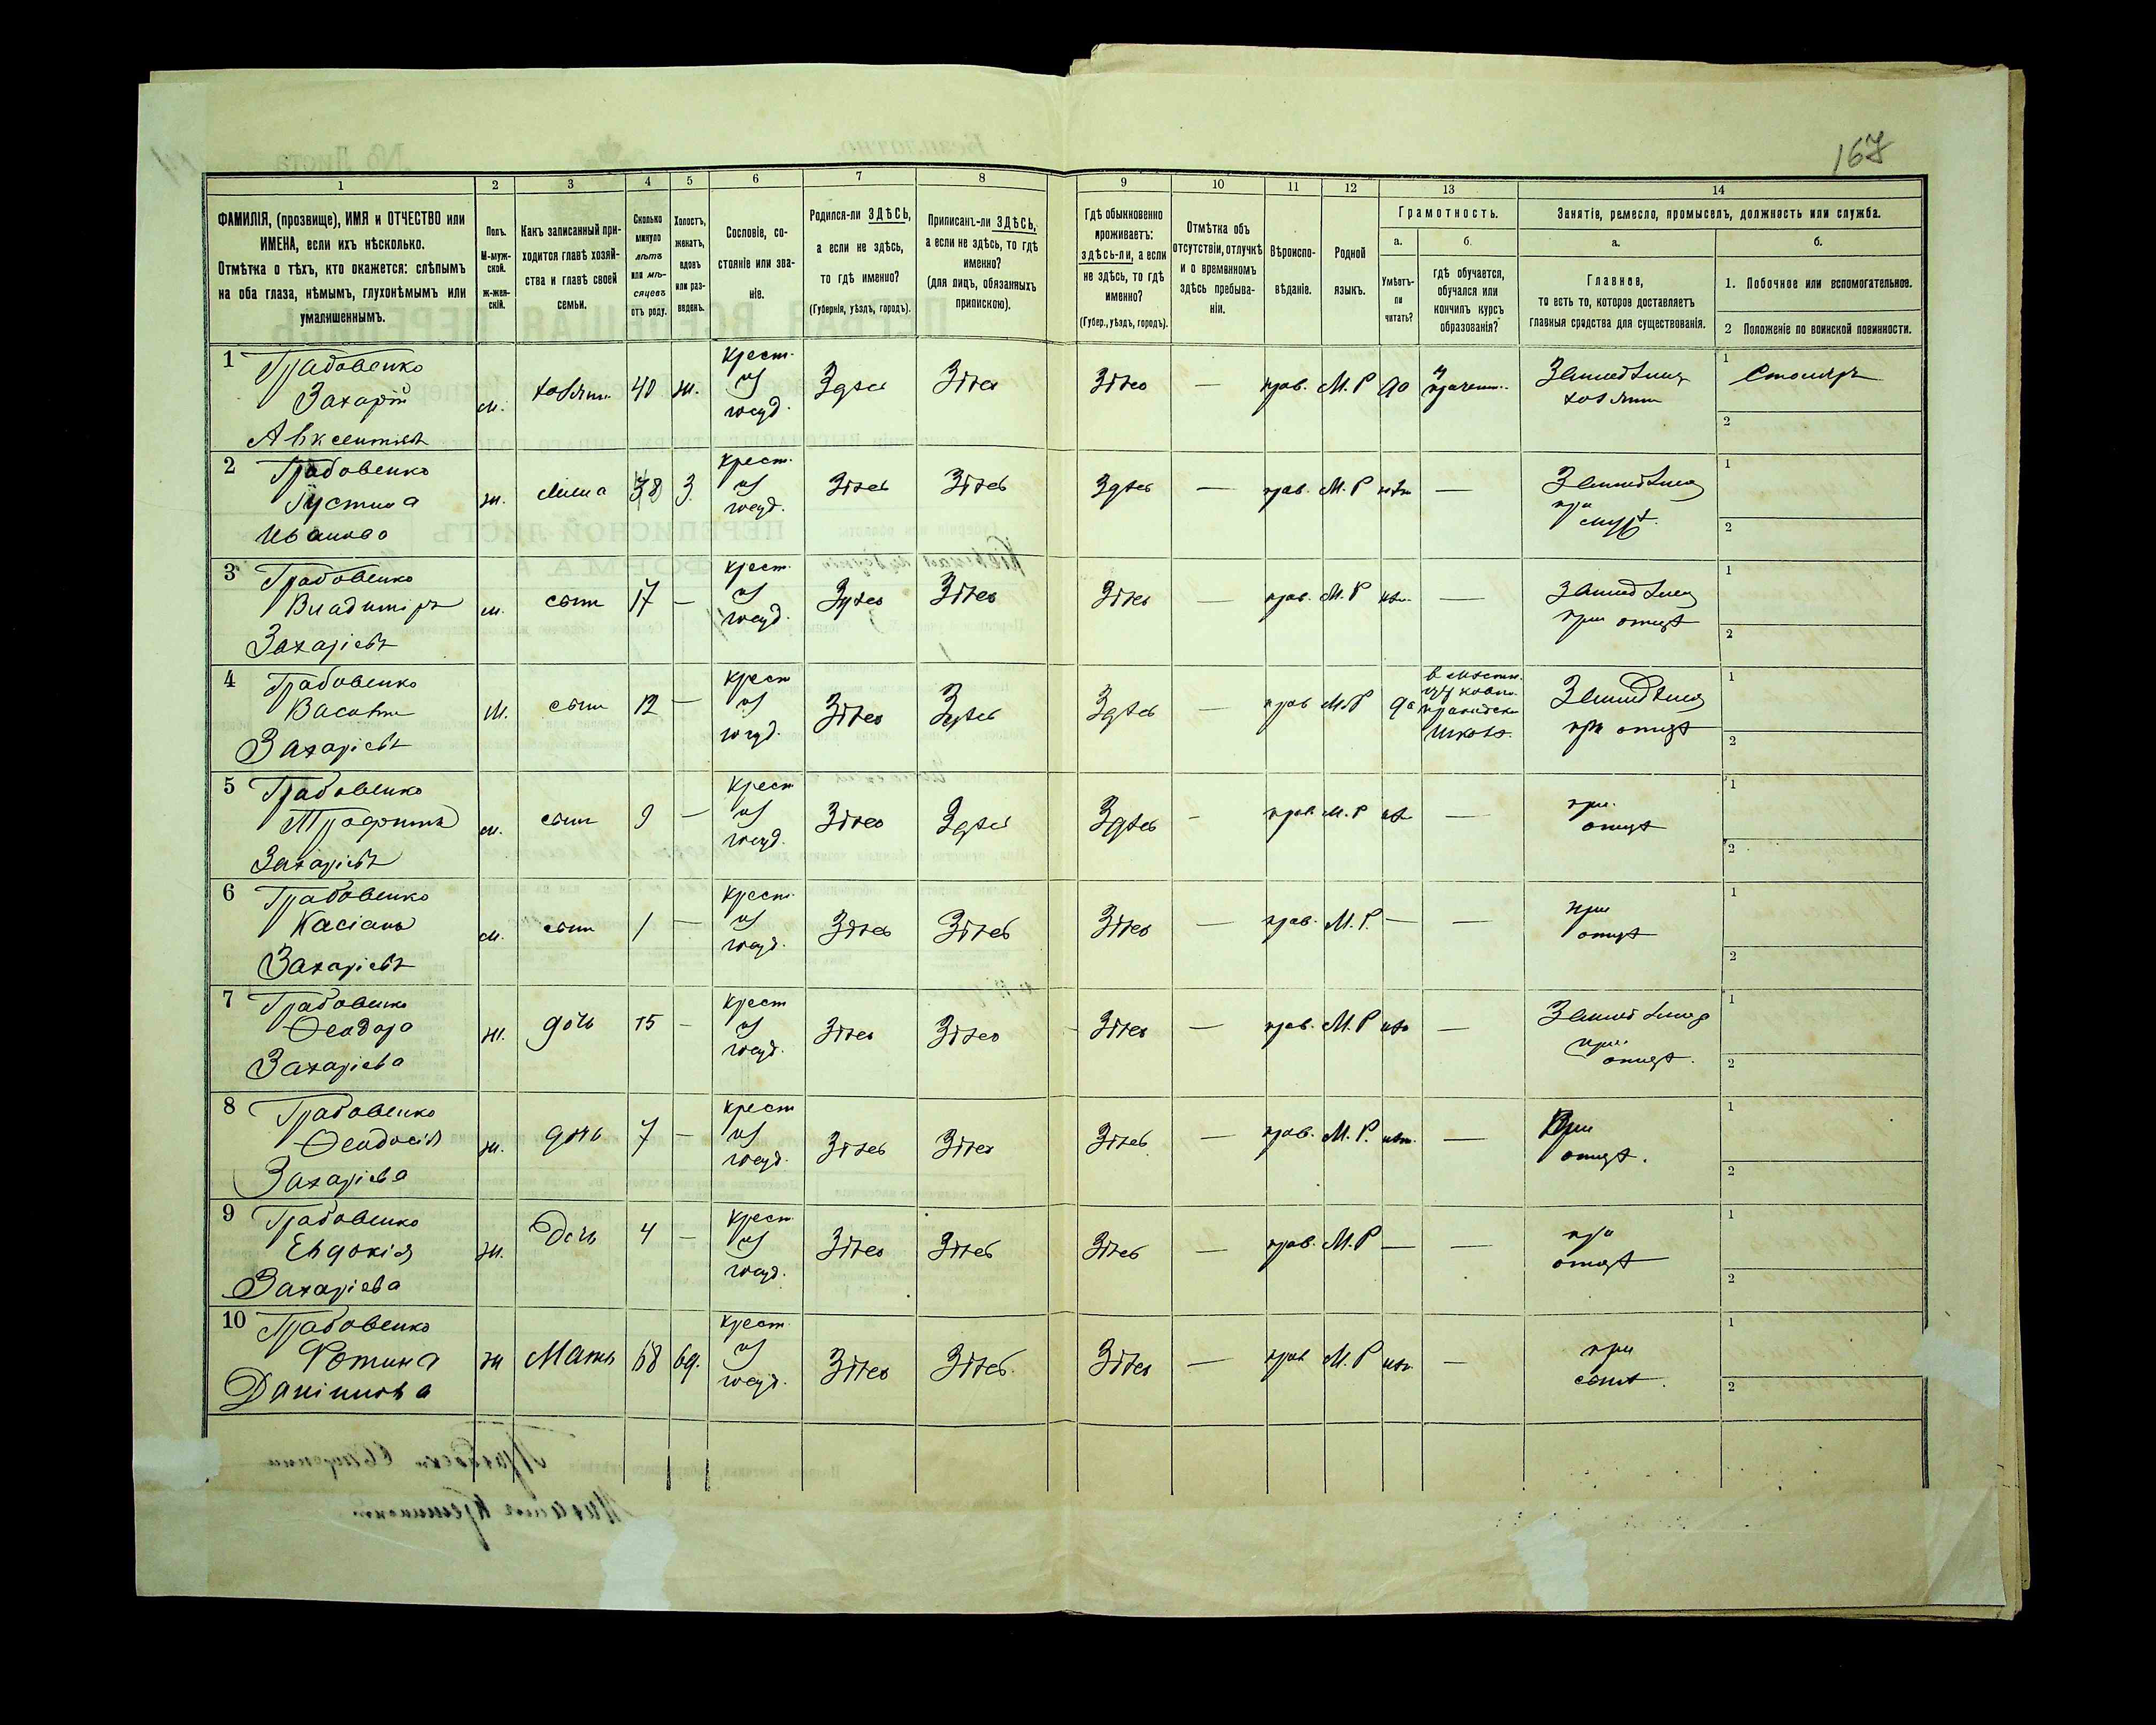 167
1 2 3 4 5 6 7 8 9 10 11 12 13 14
ФАМИЛІЯ, (прозвище), ИМЯ и ОТЧЕСТВО или
ИМЕНА, если ихъ нѣсколько.
Отмѣтка о тѣхъ, кто окажется: слѣпымъ
на оба глаза, нѣмымъ, глухонѣмымъ или
умалишеннымъ.
Полъ.
М-муж-
ской.
Ж-жен-
скій.
Какъ записанный при-
ходится главѣ хозяй-
ства и главѣ своей
семьи.
Сколько
минуло
лѣтъ
или мѣ-
сяцевъ
отъ роду.
Холостъ,
женатъ,
вдовъ
или раз-
веденъ.
Сословіе, со-
стояніе или зва-
ніе.
Родился-ли ЗДѢСЬ,
а если не здѣсь,
то гдѣ именно?
(Губернія, уѣздъ, городъ).
Приписанъ-ли ЗДѢСЬ,
а если не здѣсь, то гдѣ
именно?
(для лицъ, обязанныхъ
припискою).
Гдѣ обыкновенно
проживаетъ:
здѣсь-ли, а если
не здѣсь, то гдѣ
именно?
(Губер., уѣздъ, городъ).
Отмѣтка объ
отсутствіи, отлучкѣ
и о временномъ
здѣсь пребыва-
ніи.
Вѣроиспо-
вѣданіе.
Родной
языкъ.
Грамотность.
а.
Умѣетъ-
ли
читать?
б.
гдѣ обучается,
обучался или
кончилъ курсъ
образованія?
Занятіе, ремесло, промыселъ, должность или служба.
а.
Главное,
то есть то, которое доставляетъ
главныя средства для существованія.
б.
1. Побочное или вспомогательное.
2 Положеніе по воинской повинности.
1 Грабовенко
Захарій
Авксентіевъ
м. хозяин 40 ж.
Крест.
из
госуд.
Здѣсь Здѣсь Здѣсь — прав. М. Р да
Земледѣлец
хозяин
1 Столяръ
2
2 Грабовенко
Іустина
Иванова
ж. жена 38 З.
Крест.
из
госуд.
Здѣсь Здѣсь Здѣсь — прав. М. Р нѣт —
Земледѣлец
при
мужѣ.
1
2
3 Грабовенко
Владиміръ
Захаріевъ
м. сын 17 —
Крест.
из
госуд.
Здѣсь Здѣсь Здѣсь — прав. М. Р нѣт —
Земледѣлец
при отцѣ
1
2
4 Грабовенко
Василій
Захаріевъ
М. сын 12 —
Крест
из
госуд.
Здѣсь Здѣсь Здѣсь — прав М. Р да
в мѣстн.
церковно-
приходск.
школѣ.
Земледѣлец
при отцѣ
1
2
5 Грабовенко
Трофимъ
Захаріевъ
м. сын 9 —
Крест
из
госуд.
Здѣсь Здѣсь Здѣсь - прав. М. Р нѣт —
при
отцѣ
1
2
6 Грабовенко
Касіанъ
Захаріевъ
м. сын 1 —
Крест.
из
госуд.
Здѣсь Здѣсь Здѣсь — прав. М. Р. — —
при
отцѣ
1
2
7 Грабовенко
Феодора
Захаріева
ж. дочь 15 -
Крест
из
госуд.
Здѣсь Здѣсь Здѣсь — прав. М. Р нѣт —
Земледѣлец
при
отцѣ.
1
2
8 Грабовенко
Феодосія
Захаріева
ж. дочь 7 —
Крест
из
госуд.
Здѣсь Здѣсь Здѣсь — прав. М. Р. нѣт. —
При
отцѣ.
1
2
9 Грабовенко
Евдокія
Захаріева
ж. Дочь 4 —
Крест.
из
госуд.
Здѣсь Здѣсь Здѣсь — прав. М. Р — —
при
отцѣ
1
2
10 Грабовенко
Фотина
Даніилова
ж Мать 68 вд.
Крест.
из
госуд.
Здѣсь Здѣсь. Здѣсь — прав М. Р нѣт —
при
сынѣ.
1
2